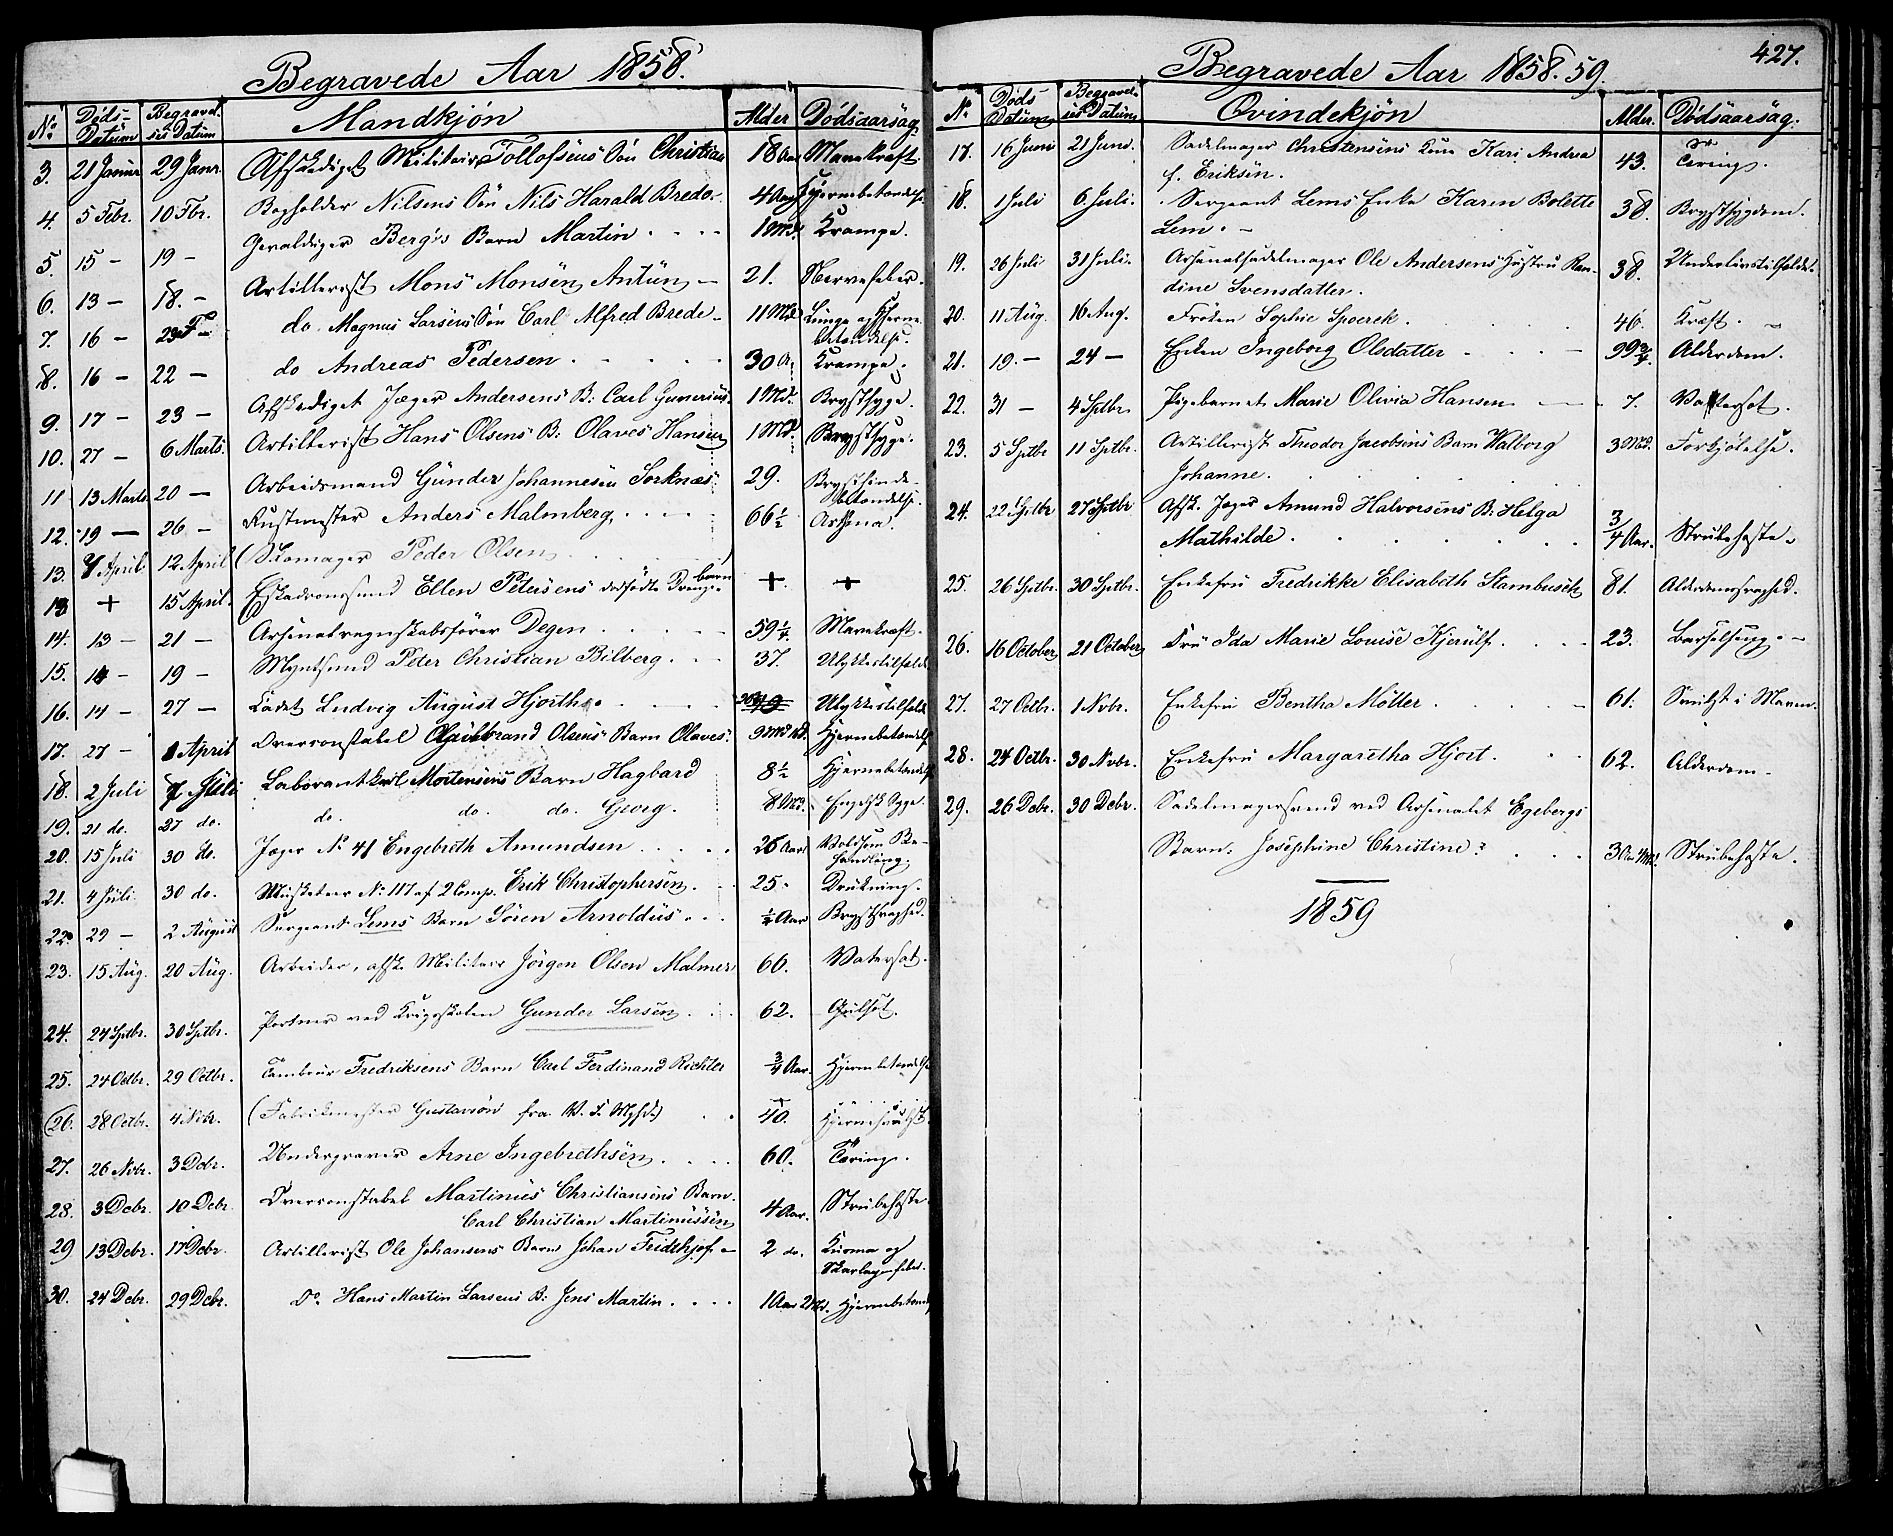 Begravede Aar 1858.
No Døds-Datum Begravelses Datum Mandkjøn Alder Dødsaarsag
3. 21 Januar 29 Janr. Afskediget Militair Tollofsens Søn Christian 18 Aar Mavekræft
4. 5 Febr. 10 Fbr. Bogholder Nilsens Søn Nils Harald Bredo 4 Aar Hjernebetændelse
5. 15 - 19 - Gevaldiger Berg's Barn Martin 1 Md. Krampe.
6. 13 - 18. - Artillerist Mons Monsen, Antun 21. Nervefeber.
7. 16 - 23 F - do. Magnus Larsens Søn Carl Alfred Brede 11 Md Lunge og Hjerne
betændelse.
8. 16 - 22 - do Andreas Pedersen 30 A. Krampe.
9. 17 - 23 - Afskediget Jæger Andersens B. Carl Gunerius 1 Md. Brystsyge.
10. 27 - 6 Marts. Artillerist Hans Olsens B. Olaves Hansen 1 Md. Brystsyge.
11 13 Marts 20 - Arbeidsmand Gunder Johannesen Sorknæs 29. Brysthinde-
betændelse.
12. 19 - 26 - Rustmester Anders Malmberg, 66½ Asthma.
13. 7 April 12 April (Skomager Peder Olsen)
13 + 15 April. Eskadronssmed Ellen Petersens dødfødte Drengebarn + +
14. 13 - 21 - Arsenalregnskabsfører Degen 59¼. Mavekræft.
15. 14 - 19 - Myntsmed Peter Christian Bilberg. 37. Ulykkestilfælde
16. 14 - 27 - Cadet Ludvig August Hjorth. Ulykkestilfælde
17. 27 - 1 April Overconstabel Gulbrand Olsens Barn Olaves. 9 Md Hjernebetændelse
18. 2 Juli 7 Juli Laborantkarl Mortensens Barn Hagbard 8½ Hjernebetændelse
19. 21 do. 27 do. do. do. do. Georg. 8 Md. Engelsk Syge.
20. 15 Juli 30 do. Jæger No 41 Engebreth Amundsen 26 Aar Voldsom Be-
handling.
21. 4 Juli 30 do. Musketeer No. 117 af 2 Comp. Erik Christophersen. 25. Drukning.
22. 29 - 2 August Sergeant Lems Barn Søren Arnoldus. ½ Aar Brystsvaghed.
23. 15 Aug. 20 Aug. Arbeider, afsk. Militair Jørgen Olsen Malmer 66. Vatersot.
24. 24 Sptbr. 30 Sptbr. Portner ved Krigsskolen Gunder Larsen. 62. Gulsot.
25. 24 Octbr. 29 Octbr. Tambour Fredriksens Barn Carl Ferdinand Richter ¾ Aar. Hjernebetændelse
(26. 28 Octbr. 4 Nvbr. (Fabrikmester Gustavson fra 40.
27. 26 Nvbr. 3 Dcbr. Undergraver Arne Ingebrethsen, 60. Tæring.
28. 3 Dcbr. 10 Dcbr. Overconstabel Martinus Christiansens Barn. 4 Aar. Strubehoste.
Carl Christian Martinussen
29 13 Dcbr. 17 Dcbr. Artillerist Ole Johansens Barn Johan Feidthjof 2 do. og
Skarlagensfeber.
30. 24 Dcbr. 29 Dcbr. Do. Hans Martin Larsens B. Jens Martin. 1 Aar 2 Md. Hjernebetændelse
427.
Begravede Aar 1858. 59.
No. Døds-Datum Begravelses Datum Qvindekjøn Alder. Dødsaarsag.
17. 16 Juni 21 Juni. Sadelmager Christensens Kone Kari Andrea 43. Tæring.
f. Eriksen.
18. 1 Juli 6 Juli. Sergeant Lems Enke Karen Bolette 38. Brystsygdom.
Lem. -
19. 26 Juli 31 Juli. Arsenalsadelmager Ole Andersens Hustru Ran- 38. Underlivstilfælde.
dine Svensdatter.
20. 11 Aug. 16 Aug. Frøken Sophie Spoerck. 46. Kræft. -
21. 19. - 24 - Enken Ingeborg Olsdatter 99¾ Alderdom.
22. 31 - 4 Sptbr. Pigebarnet Marie Olivia Hansen 7. Vattersot.
23. 5 Sptbr 11 Sptbr. Artillerist Theodor Jacobsens Barn Walborg 3 Md. Forkjølelse.
Johanne.
24. 22 Sptbr 27 Sptbr Afsk. Jæger Amund Halvorsens B. Helga
Mathilde. ¾ Aar. Strubehoste.
25. 26 Sptbr. 30 Sptbr. Enkefru Fredrikke Elisabeth Stambusch 81. Alderdomssvaghed.
26. 16 October 21 October Fru Ida Marie Louise Kjerulf. 23. Barselseng. -
27. 27 Octbr. 1 Nvbr. Enkefru Bentha Møller 61. i Maven.
28. 24 Octbr. 30 Nvbr. Enkefru Margaretha Hjort. 62. Alderdom.
29. 26 Dcbr. 30 Dcbr. Sadelmagersvend ved Arsenalet Egebergs
Barn: Josephine Christine. 3 Aar 4 Md. Strubehoste.
1859